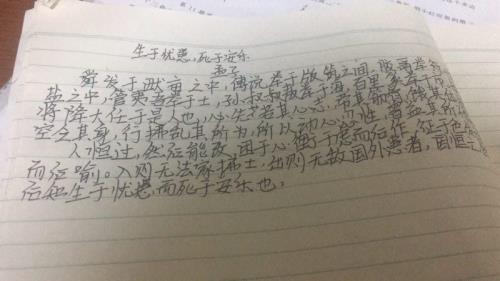 生于忧患,死于安乐
孟子
舜发于畎亩之中,傅说举于版筑之间,胶鬲举
盐之中,管夷吾举于士,孙叔敖举于海,百里奚举于
将降大任于是人也,必先苦其心志,
空乏其身,行拂乱其所为,所以动心忍性,曾益其所
人恒过,然后能改,困于心衡于虑而后作,征于色
而后喻。入则无法家拂士,出则无敌国外患者,国恒
后知生于忧患,而死于安乐也。